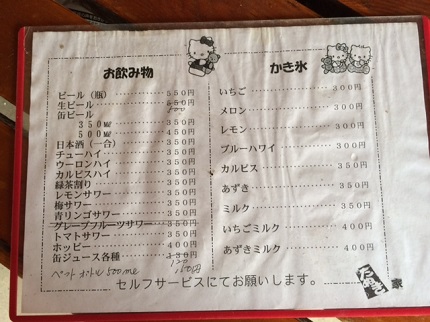 お飲み物
ビール（瓶）・・・・・・550円
生ビール・・・・・・550円
500
缶ビール
350㎖・・・・・・350円
500㎖・・・・・・450円
日本酒（一合）・・・・・・350円
チューハイ・・・・・・350円
ウーロンハイ・・・・・・350円
カルピスハイ・・・・・・350円
緑茶割り・・・・・・350円
レモンサワー・・・・・・350円
梅サワー・・・・・・350円
青リンゴサワー・・・・・・350円
グレープフルーツサワー・・・350円
トマトサワー・・・・・・350円
ホッピー・・・・・・400円
缶ジュース各種・・・・・・130円
120
ペットボトル500ml 160円
かき氷
いちご・・・・・・300円
メロン・・・・・・300円
レモン・・・・・・300円
ブルーハワイ・・・・・・300円
カルピス・・・・・・350円
あずき・・・・・・350円
ミルク・・・・・・350円
いちごミルク・・・・・・400円
あずきミルク・・・・・・400円
セルフサービスにてお願いします。
家